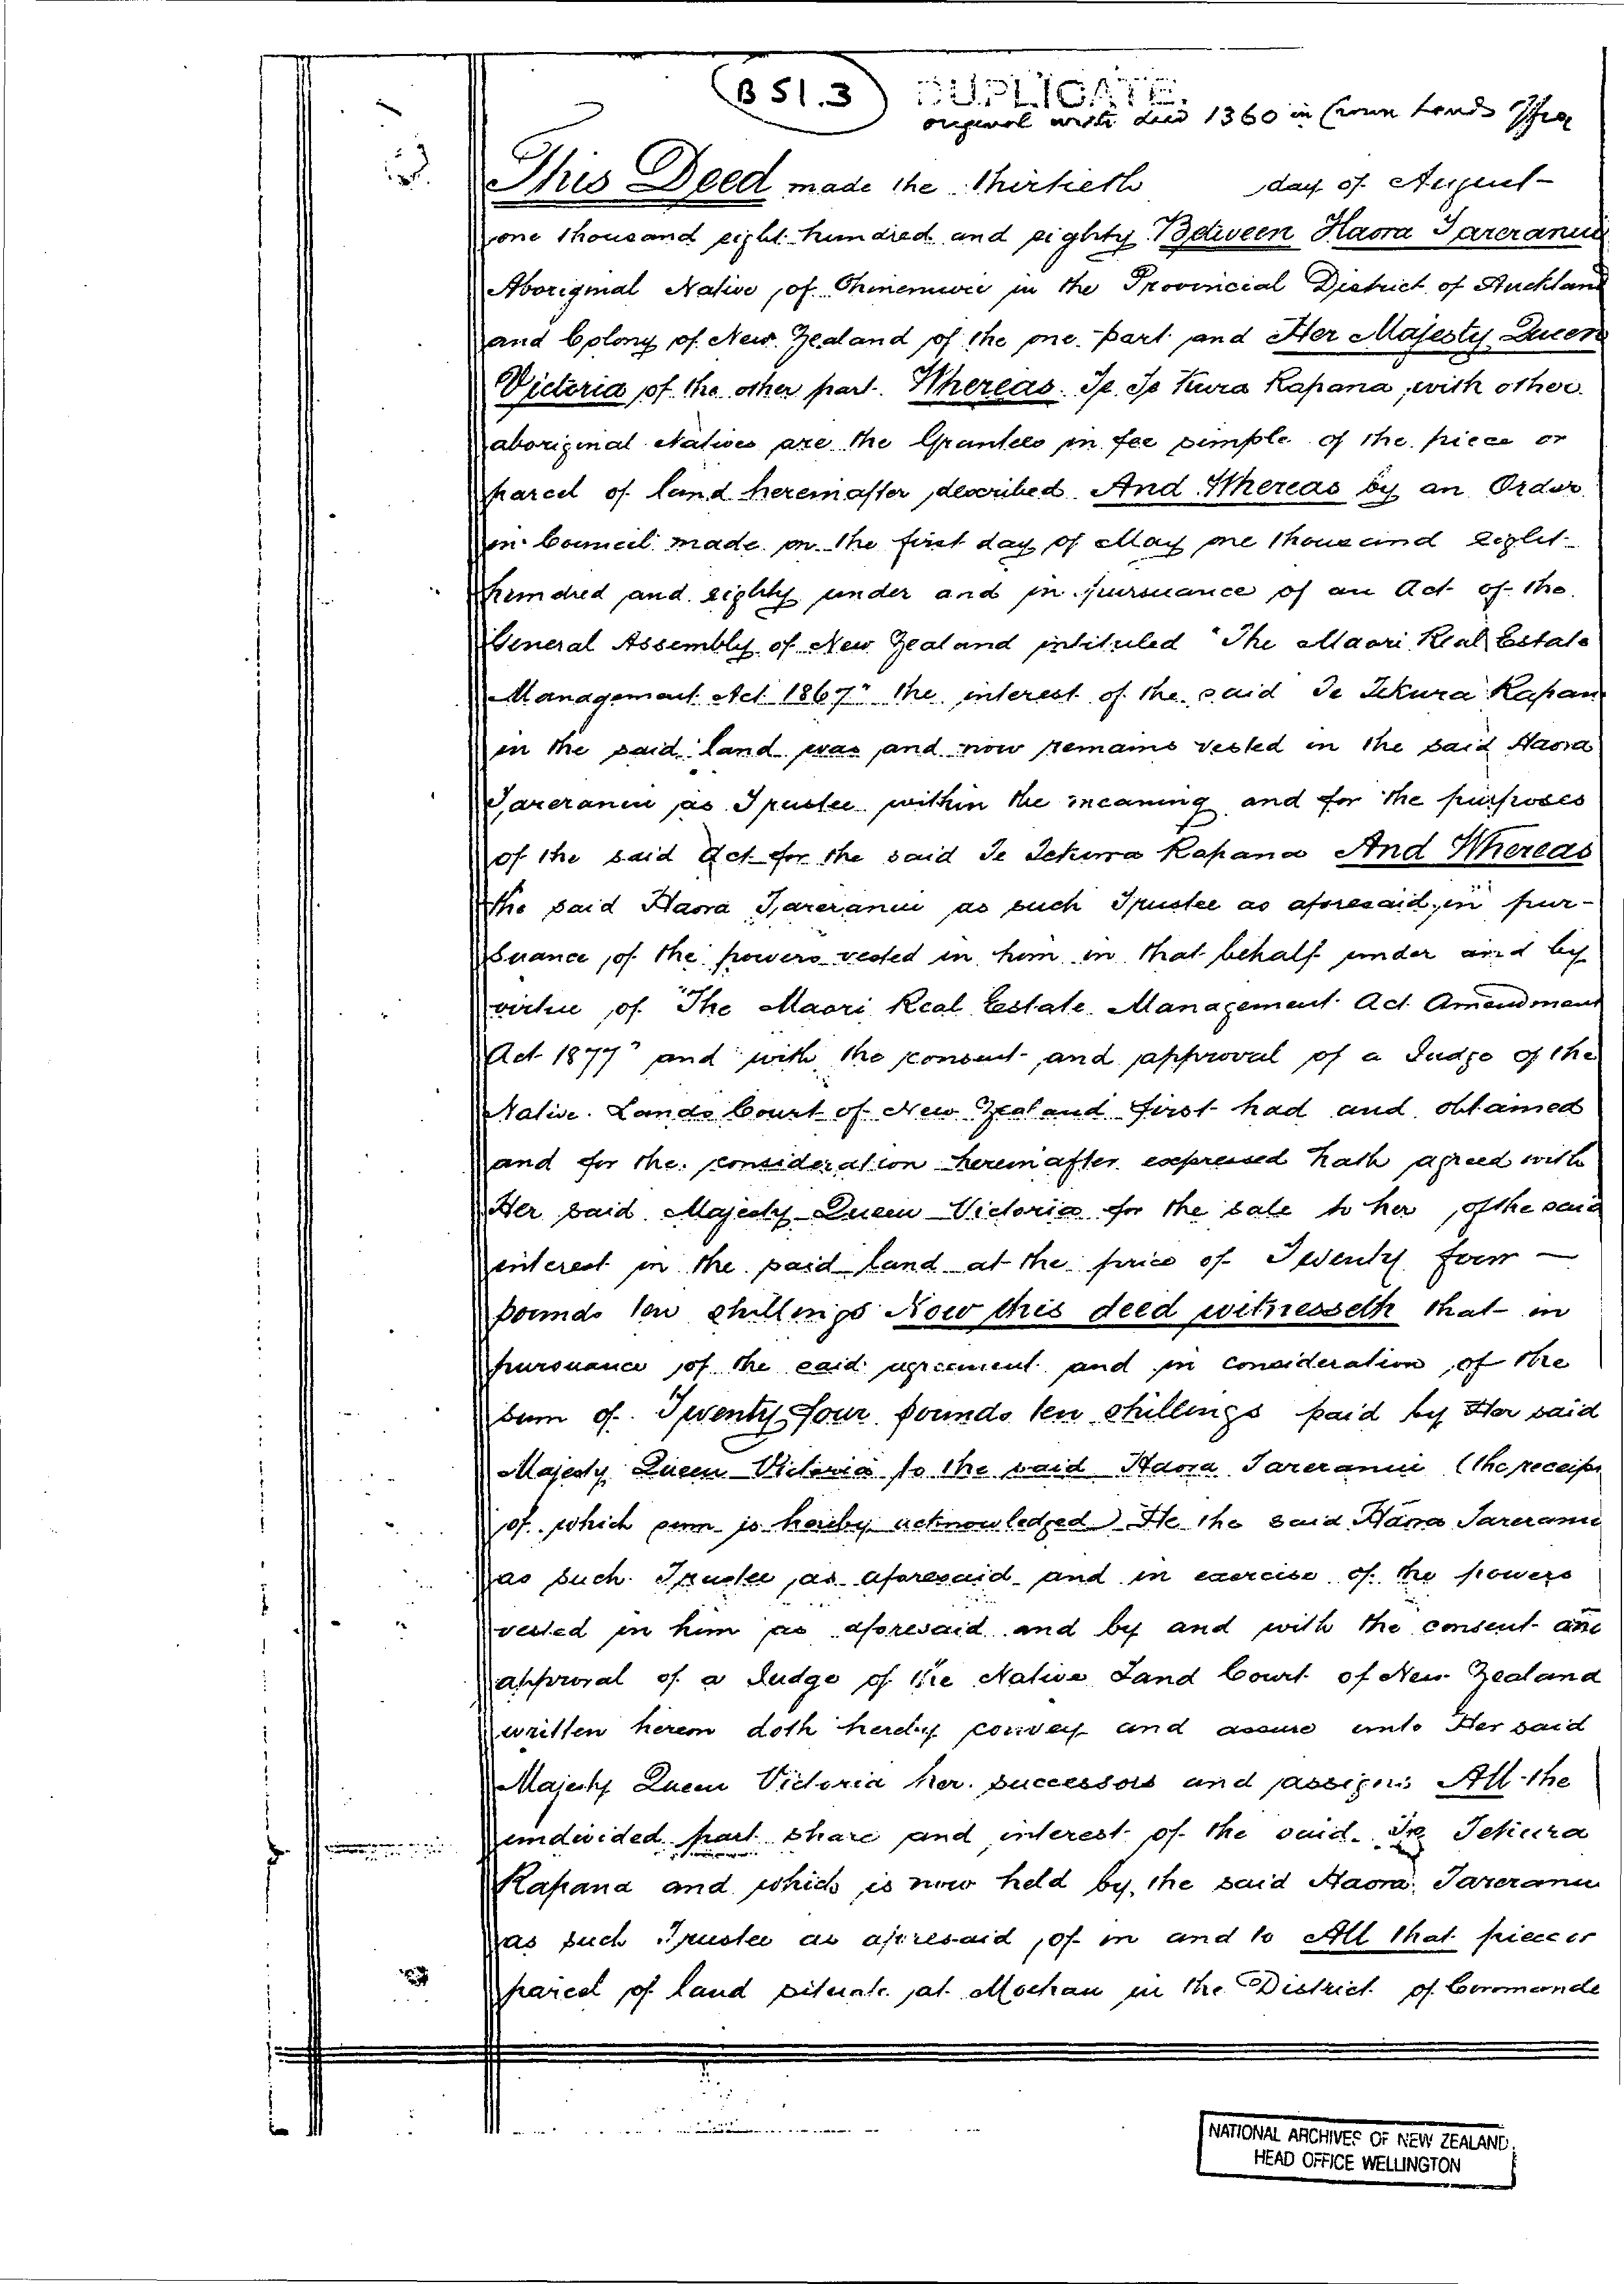 B 51.3
DUPLICATE.
original with deed 1360 in Crown Lands Office
This Deed made the Thirtieth day of August
one thousand eight hundred and eighty Between Haora Tareranui
Aboriginal Native of Ohinemuri in the Provincial District of Auckland
and Colony of New Zealand of the one part and Her Majesty Queen
Victoria of the other part. Whereas Te Te Kura Rapana with other
aboriginal Natives are the Grantees in fee simple of the piece or
parcel of land hereinafter described And Whereas by an Order
in Council made on the first day of May one thousand eight
hundred and eighty under and in pursuance of an Act of the
General Assembly of New Zealand intituled "The Maori Real Estate
Management Act 1867" the interest of the said Te Tekura Rapana
in the said land was and now remains vested in the said Haora
Tareranui as Trustee within the meaning and for the purposes
of the said Act for the said Te Tekura Rapana And Whereas
the said Haora Tareranui as such Trustee as aforesaid, in pur-
suance of the powers vested in him in that behalf under and by
virtue of "The Maori Real Estate Management Act Amendment
Act 1877" and with the consent and approval of a Judge of the
Native Lands Court of New Zealand first had and obtained
and for the consideration hereinafter expressed hath agreed with
Her said Majesty Queen Victoria for the sale to her of the said
interest in the said land at the price of Twenty four —
pounds ten shillings Now this deed witnesseth that in
pursuance of the said agreement and in consideration of the
sum of Twenty four pounds ten shillings paid by Her said
Majesty Queen Victoria to the said Haora Tareranui (the receipt
of which sum is hereby acknowledged) He the said Haora Tareranui
as such Trustee as aforesaid and in exercise of the powers
vested in him as aforesaid and by and with the consent and
approval of a Judge of the Native Land Court of New Zealand
written herein doth hereby convey and assure unto Her said
Majesty Queen Victoria her successors and assigns All the
undivided part share and interest of the said Te Tekura
Rapana and which is now held by the said Haora Tareranui
as such Trustee as aforesaid of in and to All that piece or
parcel of land situate at Moehau in the District of Coromande
NATIONAL ARCHIVES OF NEW ZEALAND.
HEAD OFFICE WELLINGTON